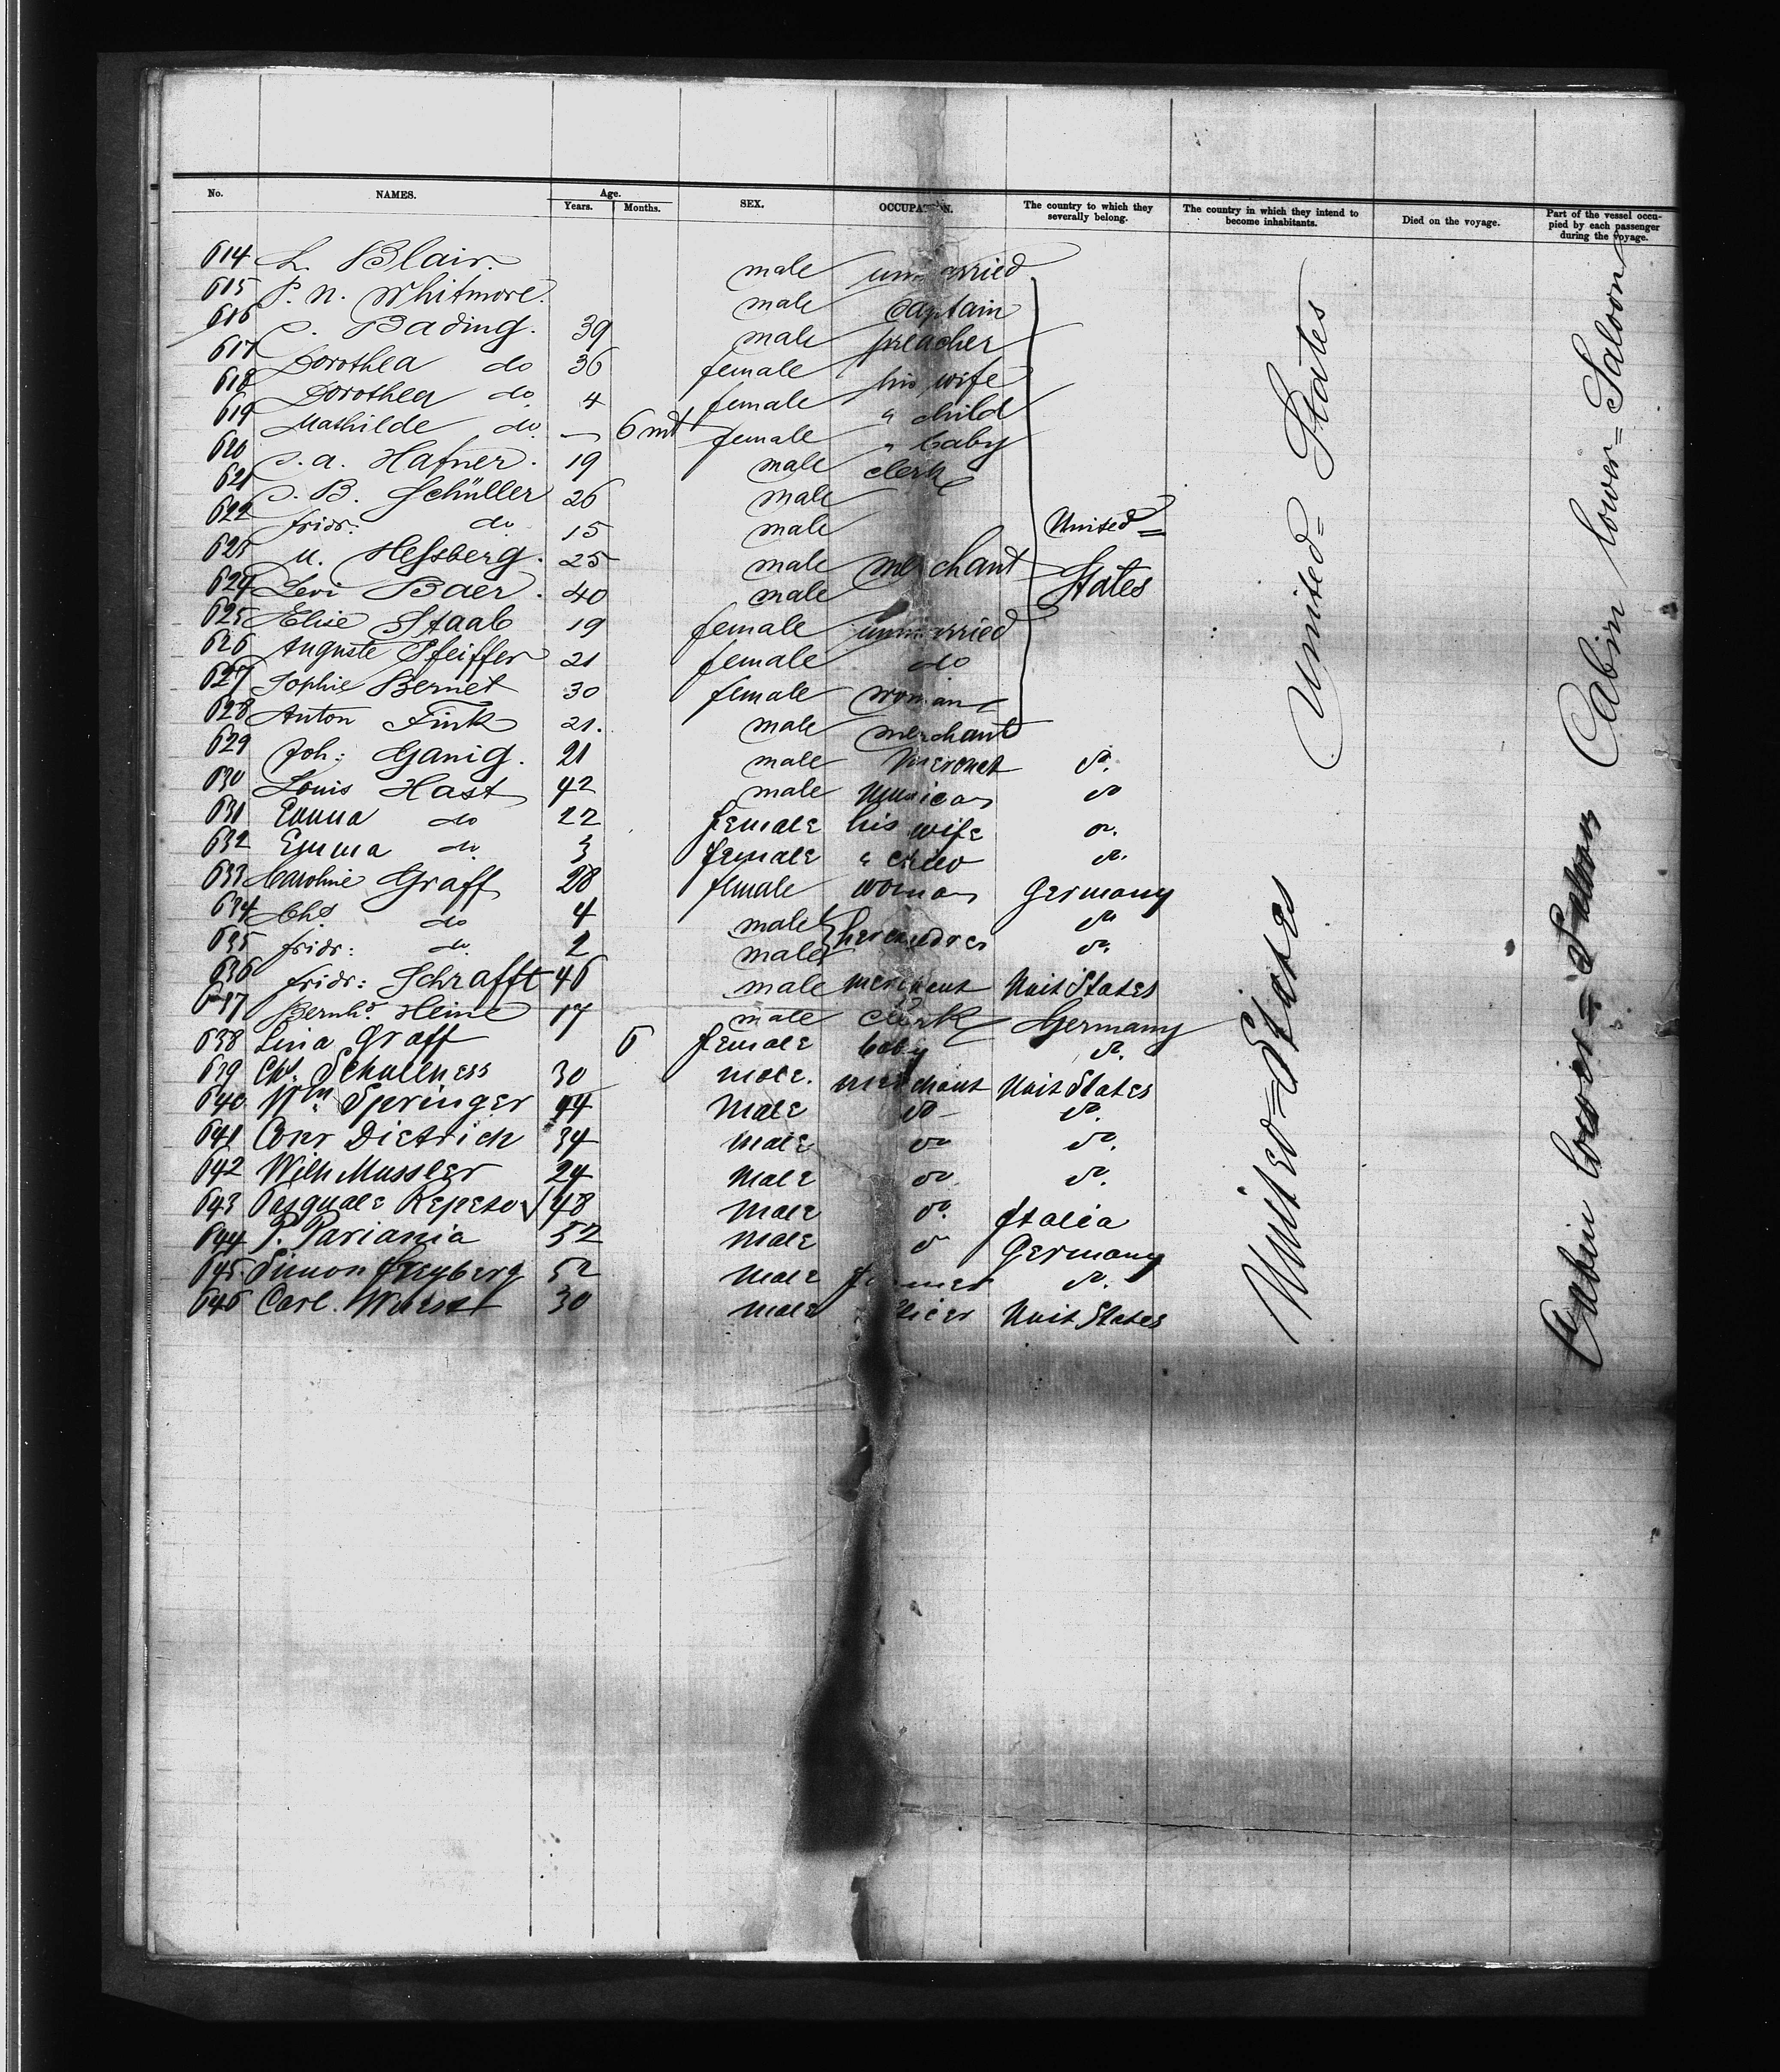 No. NAMES. Age. Years. Months. SEX. OCCUPATION. The country to which they severally belong. The country in which they intend to become inhabitants. Died on the voyage. Part of the vessel occupied by each passenger during the voyage.
614 L. Blair. male unmarried
615 P. N. Whitmore. male captain
616 C. Bading. 39 male preacher
617 Dorothea do 36 female his wife
618 Dorothea do 4 female " child
619 Mathilde do — 6 mt female " baby
620 C. A. Hafner. 19 male clerk
621 C. B. Schüller 26 male
622 Fridr: do 15 male United=
623 M. Hessberg. 25 male merchant States
624 Levi Baer. 40 male
625 Elise Staab 19 female unmarried
626 Auguste Pfeiffer 21 female do
627 Sophie Bernet 30 female woman
628 Anton Fink 21. male merchant
629 Joh: Ganig. 21 male do.
630 Louis Hast 42 male Musican do
631 Emma do 22 female his wife do.
632 Emma do 3 female " child do.
633 Caroline Graff 28 female woman Germany
634 Chs do 4 male do
635 Fridr: do 2 male do.
636 Fridr: Schrafft 46 male merchant Unit States
637 Bernhd. Heine 17 male clerk Germany
638 Lina Graff 6 female baby do.
639 Chs. Schullness 30 male. merchant Unit States
640 Wm Springer 44 Male do do.
641 Conr Dietrich 34 Male do do.
642 Wilh Mussler 24 Male do do.
643 Pasquale Repeto 48 Male do. Italia
644 P. Pariania 52 Male do Germany
645. Simon Freyberg 52 Male farmer do.
646 Carl Wuerst 30 male Unit States
United= States
United=States
Cabin lower= Saloon
Cabin lower= Saloon